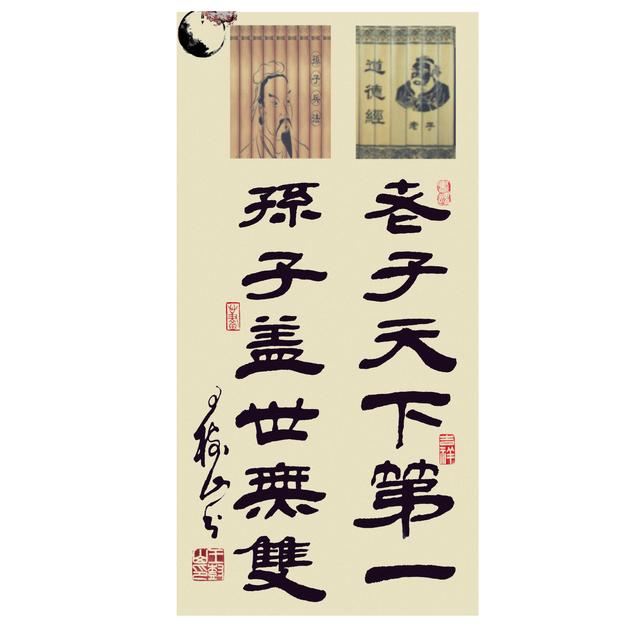 道德經
老子
孫子兵法
老子天下第一
孫子盖世無雙
吉祥